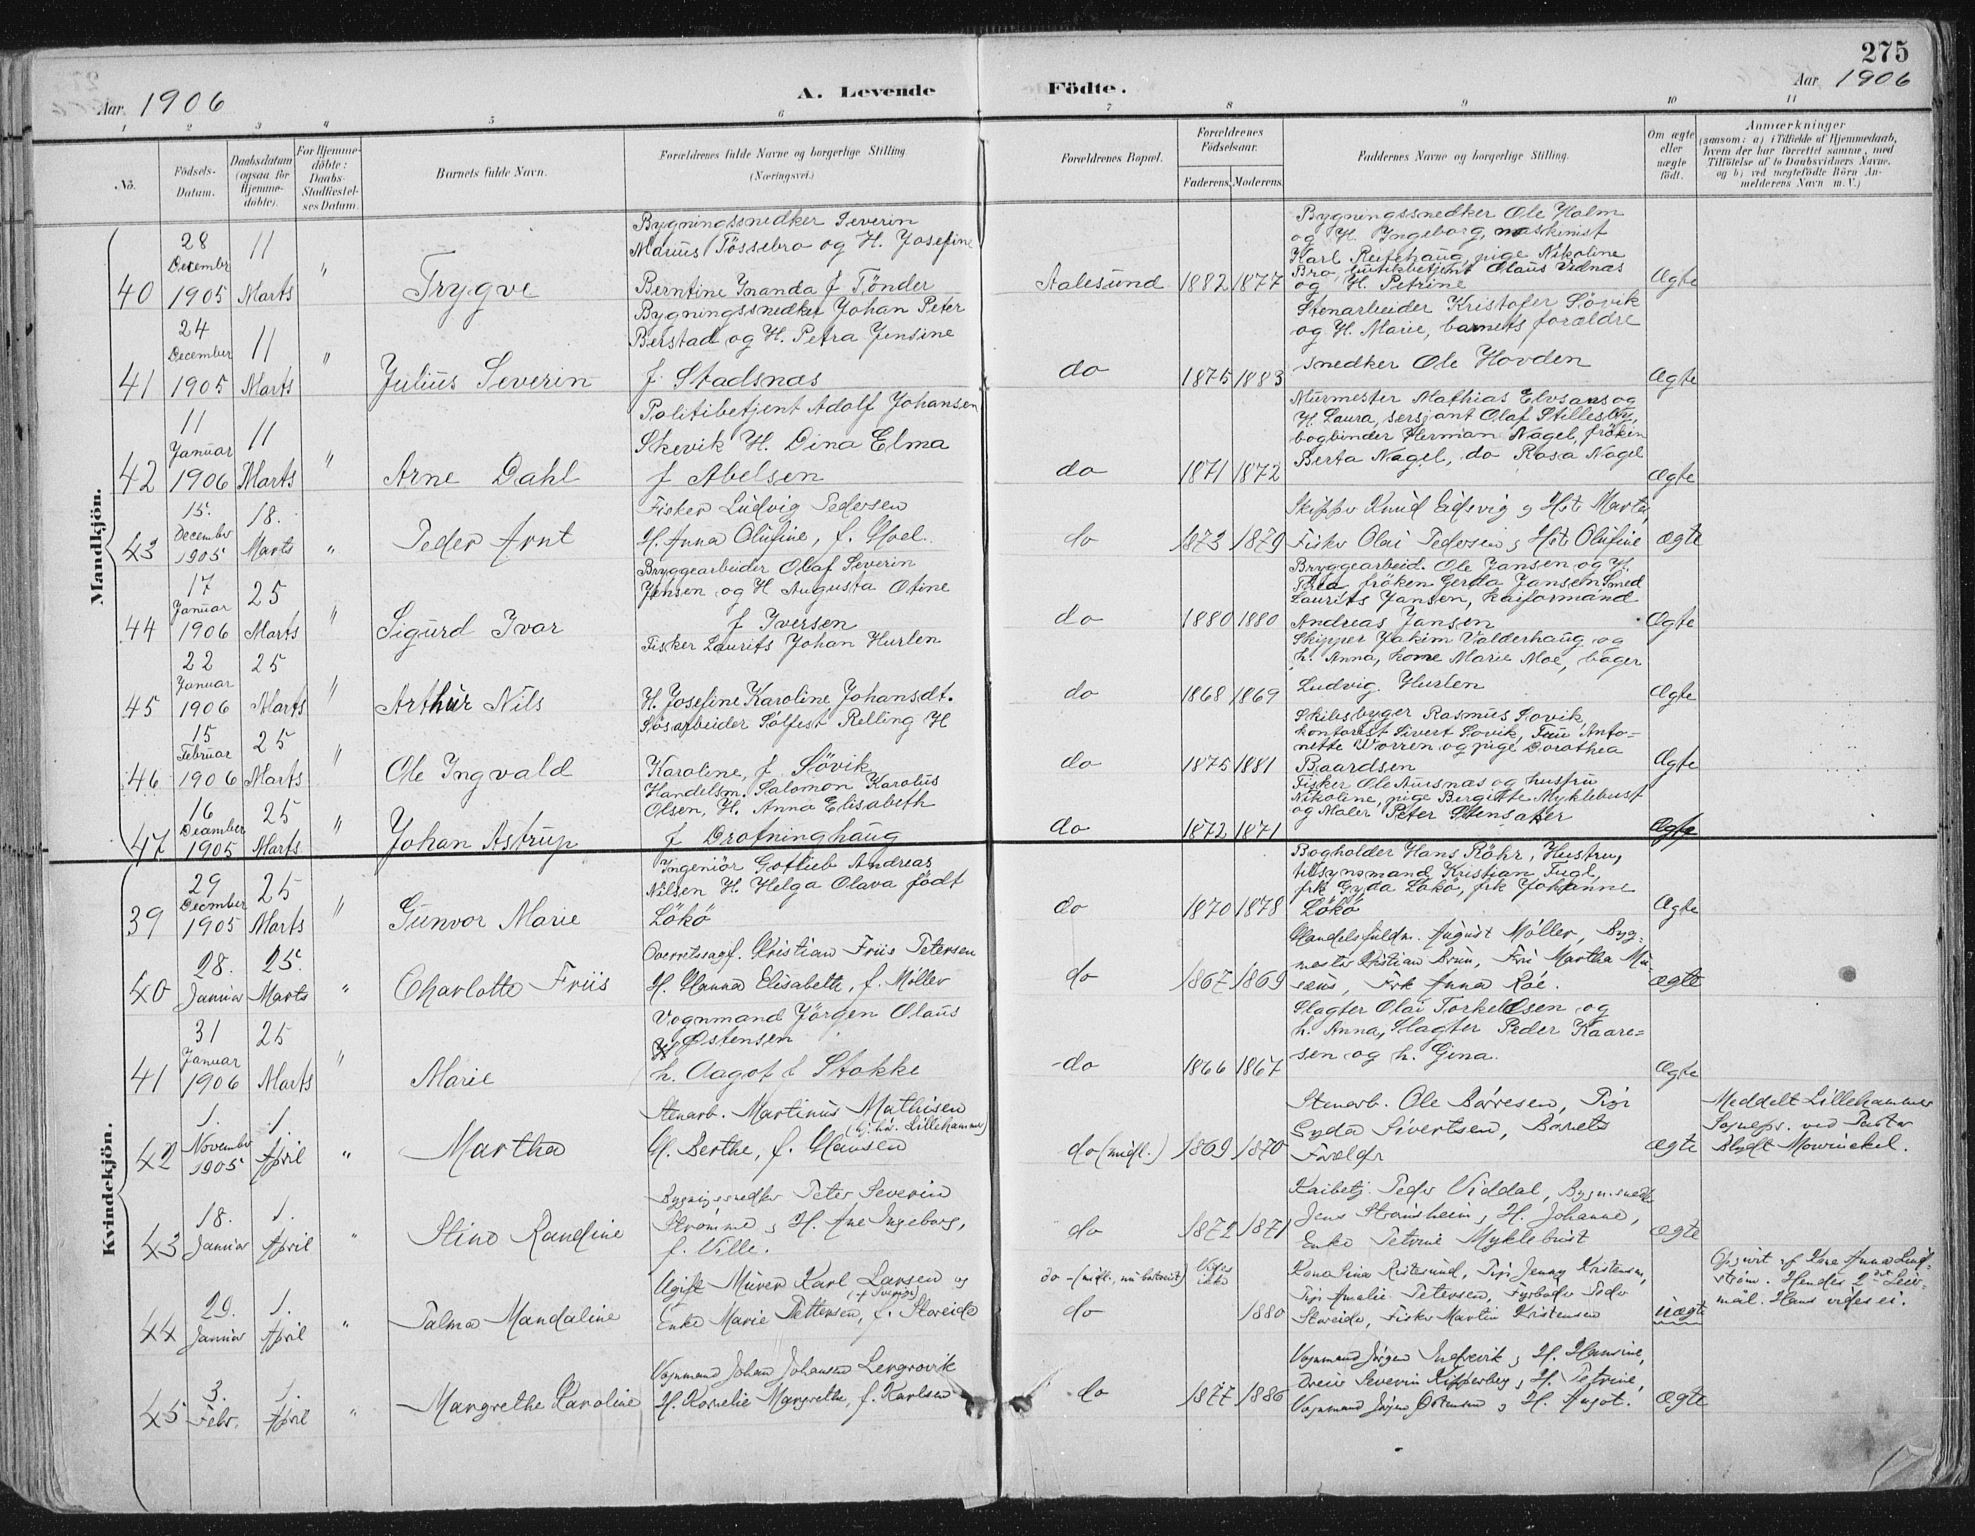 275
Aar 1906
A. Levende Födte.
Aar 1906
1 2 3 4 5 6 7 8 9 10 11
No.
Födsels-Datum.
Daabsdatum (ogsaa for Hjemmedöbte).
For Hjemmedöbte: Daabs-Stadfæstelses Datum.
Barnets fulde Navn.
Forældrenes fulde Navne og borgerlige Stilling. (Næringsvei.)
Forældrenes Bopæl.
Forældrenes Födselsaar.
Faderens. Moderens.
Faddernes Navne og borgerlige Stilling.
Om ægte eller uægte födt.
Anmærkninger
(saasom: a) i Tilfælde af Hjemmedaab, hvem der har forrettet samme, med Tilföielse af to Daabsvidners Navne, og b) ved uægtefödte Börn Anmelderens Navn m. V.)
Mandkjön.
40
28 December 1905
11 Marts
"
Trygve
Bygningssnedker Severin
Marius Tössebro og H. Josefine
Berntine Inanda f Tönder
Aalesund
1882 1877
Bygningssnedker Ole Holm
og H. Ingeborg, maskinist
Karl Reitehaug, pige Nikoline
Bro, butikbetjent Olaus Vednas
og H. Petrine
Ægte
41
24 December 1905
11 Marts
"
Julius Severin
Bygningssnedker Johan Peter
Berstad og H. Petra Jensine
f Stadsnas
do
1875 1883
Stenarbeider Kristofer Sövik
og H. Marie, barnets forældre
snedker Ole Hovden
Ægte
42
11 Januar 1906
11 Marts
"
Arne Dahl
Politibetjent Adolf Johansen
Skevik H. Dina Elma
f Abelsen
do
1871 1872
Murmester Mathias Elvsaas og
H. Laura, sersjant Olaf Stillesby,
bogbinder Herman Nagel, fröken
Berta Nagel, do Rosa Nagel
Ægte
43
15. December 1905
18. Marts
"
Peder Arnt
Fisker Ludvig Pedersen
H. Anna Olufine, f. Hoel.
do
1873 1879
Skipper Knud Eidsvig og Hst Marta,
Fisker Olai Pedersen og Hst Olufine
ægte
44
17 Januar 1906
25 Marts
"
Sigurd Ivar
Bryggearbeider Olaf Severin
Jensen og H Augusta Otine
f Iversen
do
1880 1880
Bryggearbeid. Ole Jansen og H.
Thea, fröken Gerda Jansen Smed
Laurits Jansen, kaiformand
Andreas Jansen
Ægte
45
22 Januar 1906
25 Marts
"
Arthur Nils
Fisker Laurits Johan Hurlen
H. Josefine Karoline Johansdt.
do
1868 1869
Skipper Jakim Valderhaug og
h. Anna, kone Marie Moe, bager
Ludvig Hurlen
Ægte
46
15 Februar 1906
25 Marts
"
Ole Ingvald
Sösarbeider Sölfest Relling H
Karoline, f. Sövik
do
1875 1881
Skibsbyger Rasmus Sovik,
kontorist Sivert Sovik, Fru Anto-
nette Worren og pige Dorothea
Baardsen
Ægte
47
16 December 1905
25 Marts
"
Johan Astrup
Handelsm. Salomon Karolus
Olsen, H. Anna Elisabeth
f Drotninghaug
do
1872 1871
Fisker Ole Aursnas og hustru
Nikoline, pige Bergitte Myklebust
og Maler Peter Stensaker
Ægte
Kvindekjön.
39
29 December 1905
25 Marts
"
Gunvor Marie
Ingeniör Gotlieb Andreas
Nilsen H. Helga Olava födt
Lökö
do
1870 1878
Bogholder Hans Röhr, Hustru,
tilsynsmand Kristian Fugl,
frk Gyda Lökö, frk Johanne
Lökö
Ægte
40
28. Januar
25. Marts
"
Charlotte Friis
Overretssagf. Kristian Friis Petersen
H. Hanna Elisabeth, f. Möller
do
1867 1869
Handelsfuldm. August Möller, Byg-
mester Kristian Brun, Fru Martha Mu-
sæus, Frk Anna Röe.
ægte
41
31 Januar 1906
25 Marts
"
Marie
Vognmand Jörgen Olaus
Östensen
h. Aagot f Stokke
do
1866 1867
Slagter Olai Torkelsen og
h. Anna, Slagter Peder Kaare-
sen og h. Gina.
Ægte
42
1. November 1905
1. April
"
Martha
Stenarb. Martinus Mathisen
(hj. hör. Lillehammer)
H. Berthe, f. Hansen
do (midl.)
1869 1870
Stenarb. Ole Börresen, Pigi
Gyda Sivertsen, Barnets
Foreldr
ægte
Meddelt Lillehammer
Sognepr. ved Pastor
Blydt Mowinckel.
43
18. Januar
1. April
"
Stine Randine
Bygningssnedker Peter Severin
Strömme og H. Ane Ingeborg,
f. Ville.
do
1872 1871
Kaibetj. Peder Viddal, Bygn.snedk
Jens Strömsheim og H. Johanne,
Enke Petrine Myklebust
ægte
44
29. Januar
1. April
"
Palma Mandaline
Ugift Murer Karl Larsen og
(f. Sverige)
Enke Marie Pettersen, f. Storeide
do - (midl., nu bortreist)
do
Vides ikke
1880
Kona Lina Ristesund, Pigi Jenny Kristensen,
Pigi Amalie Petersen, Fyrböder Peder
Storeide, Fisker Martin Kristensen
uægte
Opgivit af Kone Anna Lind-
ström. Hendes 2det Leier-
mål. Hans vides ei.
45
3. Febr.
1. April
"
Margrethe Karoline
Vognmand Johan Johansen Lengrovik
H. Kornelie Margrethe, f. Karlsen
do
1877 1886
Vognmand Jörgen Indrevik og H. Hansine,
Dreier Severin Kipperberg og H. Petrine,
Vognmand Jörgen Östensen og H. Aagot.
ægte